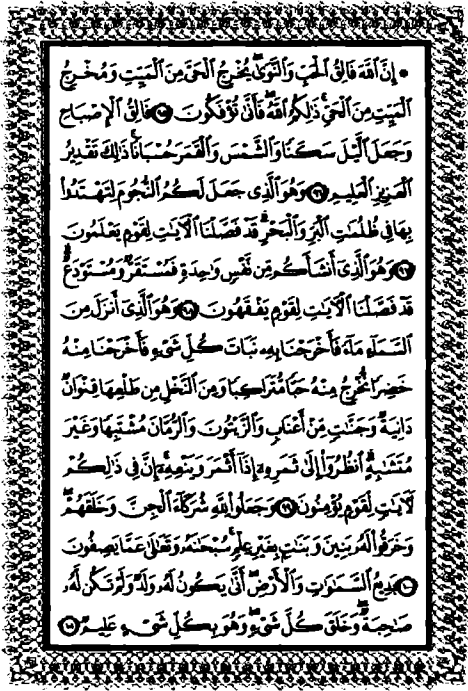 ۞ إِنَّ ٱللَّهَ فَالِقُ ٱلْحَبِّ وَٱلنَّوَىٰ يُخْرِجُ ٱلْحَىَّ مِنَ ٱلْمَيِّتِ وَمُخْرِجُ
ٱلْمَيِّتِ مِنَ ٱلْحَىِّ ذَٰلِكُمُ ٱللَّهُ فَأَنَّىٰ تُؤْفَكُونَ ٩٥ فَالِقُ ٱلْإِصْبَاحِ
وَجَعَلَ ٱلَّيْلَ سَكَنًا وَٱلشَّمْسَ وَٱلْقَمَرَ حُسْبَانًا ذَٰلِكَ تَقْدِيرُ
ٱلْعَزِيزِ ٱلْعَلِيمِ ٩٦ وَهُوَ ٱلَّذِى جَعَلَ لَكُمُ ٱلنُّجُومَ لِتَهْتَدُوا۟
بِهَا فِى ظُلُمَٰتِ ٱلْبَرِّ وَٱلْبَحْرِ قَدْ فَصَّلْنَا ٱلْءَايَٰتِ لِقَوْمٍ يَعْلَمُونَ
٩٧ وَهُوَ ٱلَّذِىٓ أَنشَأَكُم مِّن نَّفْسٍ وَٰحِدَةٍ فَمُسْتَقَرٌّ وَمُسْتَوْدَعٌ
قَدْ فَصَّلْنَا ٱلْءَايَٰتِ لِقَوْمٍ يَفْقَهُونَ ٩٨ وَهُوَ ٱلَّذِىٓ أَنزَلَ مِنَ
ٱلسَّمَآءِ مَآءً فَأَخْرَجْنَا بِهِۦ نَبَاتَ كُلِّ شَىْءٍ فَأَخْرَجْنَا مِنْهُ
خَضِرًا نُّخْرِجُ مِنْهُ حَبًّا مُّتَرَاكِبًا وَمِنَ ٱلنَّخْلِ مِن طَلْعِهَا قِنْوَانٌ
دَانِيَةٌ وَجَنَّٰتٍ مِّنْ أَعْنَابٍ وَٱلزَّيْتُونَ وَٱلرُّمَّانَ مُشْتَبِهًا وَغَيْرَ
مُتَشَٰبِهٍ ٱنظُرُوٓا۟ إِلَىٰ ثَمَرِهِۦٓ إِذَآ أَثْمَرَ وَيَنْعِهِۦٓ إِنَّ فِى ذَٰلِكُمْ
لَءَايَٰتٍ لِّقَوْمٍ يُؤْمِنُونَ ٩٩ وَجَعَلُوا۟ لِلَّهِ شُرَكَآءَ ٱلْجِنَّ وَخَلَقَهُمْ
وَخَرَقُوا۟ لَهُۥ بَنِينَ وَبَنَٰتٍۭ بِغَيْرِ عِلْمٍ سُبْحَٰنَهُۥ وَتَعَٰلَىٰ عَمَّا يَصِفُونَ
١٠٠ بَدِيعُ ٱلسَّمَٰوَٰتِ وَٱلْأَرْضِ أَنَّىٰ يَكُونُ لَهُۥ وَلَدٌ وَلَمْ تَكُن لَّهُۥ
صَٰحِبَةٌ وَخَلَقَ كُلَّ شَىْءٍ وَهُوَ بِكُلِّ شَىْءٍ عَلِيمٌ ١٠١